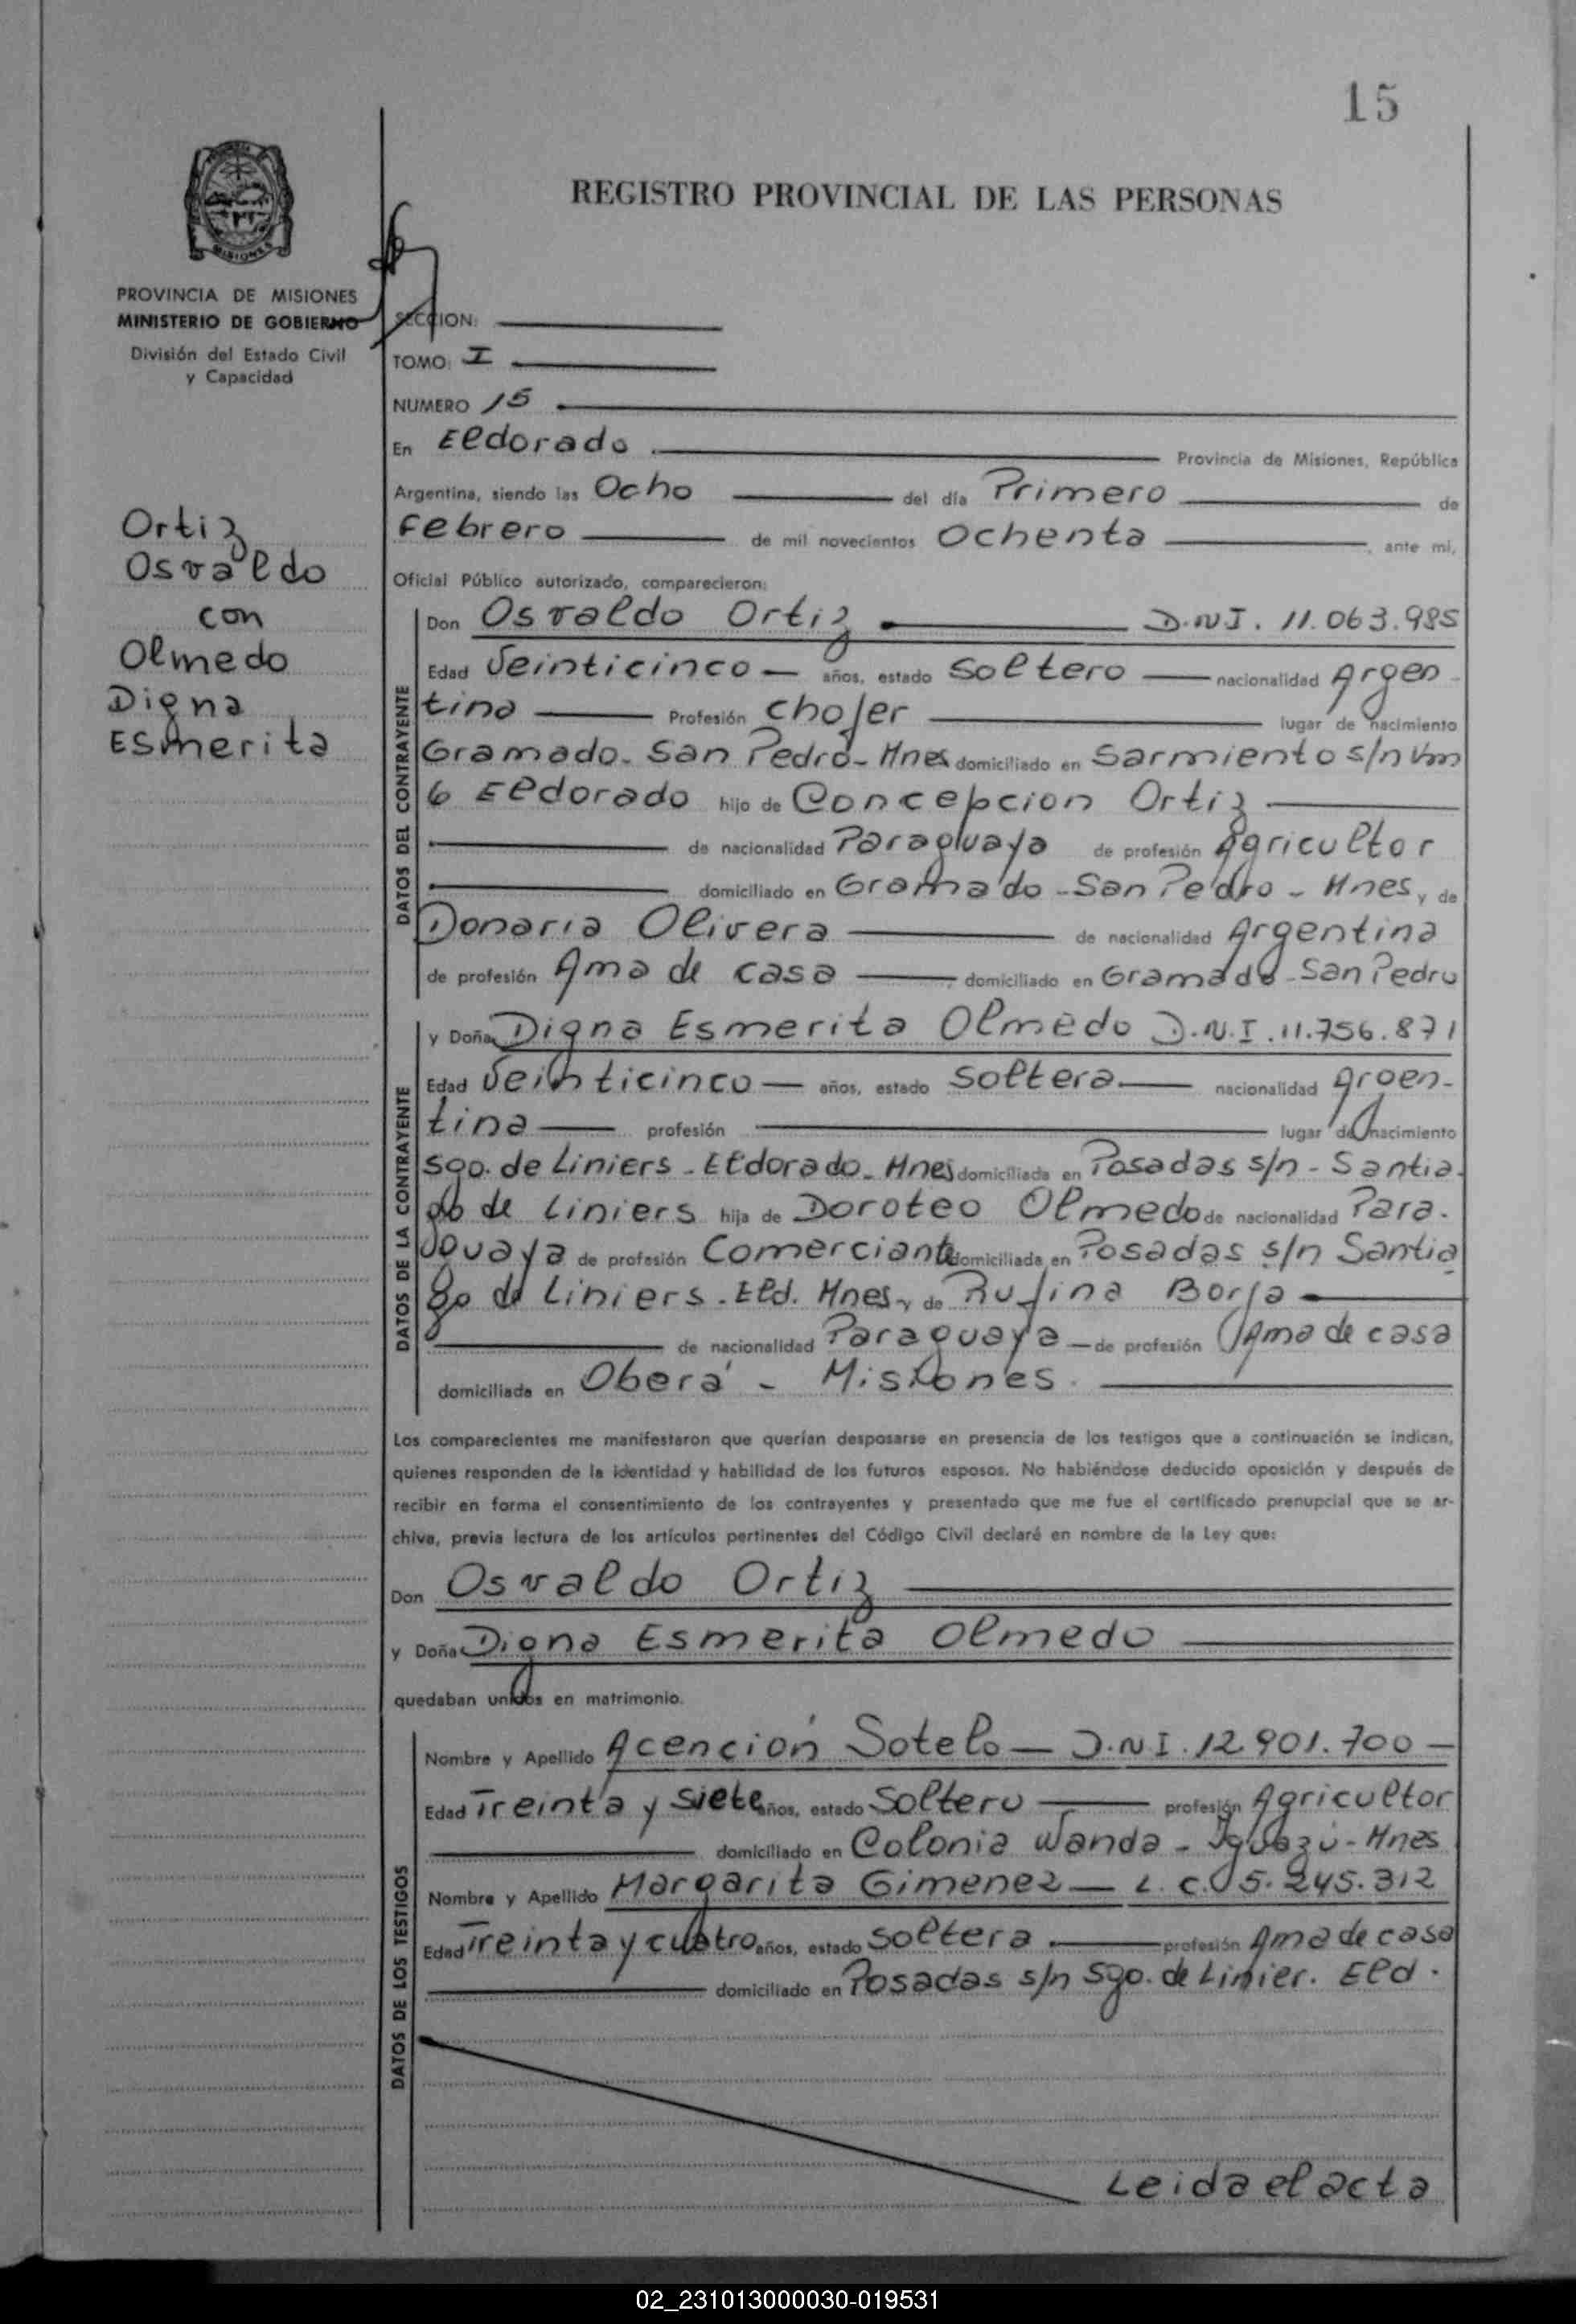 15
REGISTRO PROVINCIAL DE LAS PERSONAS
MISIONES
PROVINCIA DE MISIONES
MINISTERIO DE GOBIERNO
División del Estado Civil
y Capacidad
SECCION:
TOMO: I
NUMERO 15
En Eldorado Provincia de Misiones, República
Argentina, siendo las Ocho del día Primero de
Febrero de mil novecientos Ochenta, ante mi,
Oficial Público autorizado, comparecieron:
Ortiz
Osvaldo
con
Olmedo
Digna
Esmerita
DATOS DEL CONTRAYENTE
Don Osvaldo Ortiz D.N.I. 11.063.985
Edad Veinticinco años, estado Soltero nacionalidad Argen-
tina Profesión Chofer lugar de nacimiento
Gramado - San Pedro - Mnes domiciliado en Sarmiento s/n Km
6 Eldorado hijo de Concepcion Ortiz
de nacionalidad Paraguaya de profesión Agricultor
domiciliado en Gramado - San Pedro - Mnes y de
Donaria Olivera de nacionalidad Argentina
de profesión Ama de casa, domiciliado en Gramado - San Pedro
DATOS DE LA CONTRAYENTE
y Doña Digna Esmerita Olmedo D.N.I. 11.756.871
Edad Veinticinco años, estado Soltera nacionalidad Argen-
tina profesión lugar de nacimiento
Sgo. de Liniers - Eldorado - Mnes domiciliada en Posadas s/n - Santia-
go de Liniers hija de Doroteo Olmedo de nacionalidad Para-
guaya de profesión Comerciante domiciliada en Posadas s/n Santia
go de Liniers - Eld. Mnes y de Rufina Borja
de nacionalidad Paraguaya de profesión Ama de casa
domiciliada en Oberá - Misiones.
Los comparecientes me manifestaron que querían desposarse en presencia de los testigos que a continuación se indican,
quienes responden de la identidad y habilidad de los futuros esposos. No habiéndose deducido oposición y después de
recibir en forma el consentimiento de los contrayentes y presentado que me fue el certificado prenupcial que se ar-
chiva, previa lectura de los artículos pertinentes del Código Civil declaré en nombre de la Ley que:
Don Osvaldo Ortiz
y Doña Digna Esmerita Olmedo
quedaban unidos en matrimonio.
DATOS DE LOS TESTIGOS
Nombre y Apellido Acención Sotelo - D.N.I. 12.901.700
Edad Treinta y siete años, estado Soltero profesión Agricultor
domiciliado en Colonia Wanda - Iguazú - Mnes
Nombre y Apellido Margarita Gimenez - L.C. 5.245.312
Edad Treinta y cuatro años, estado Soltera profesión Ama de casa
domiciliado en Posadas s/n Sgo. de Linier. Eld.
Leida el acta
02_231013000030-019531